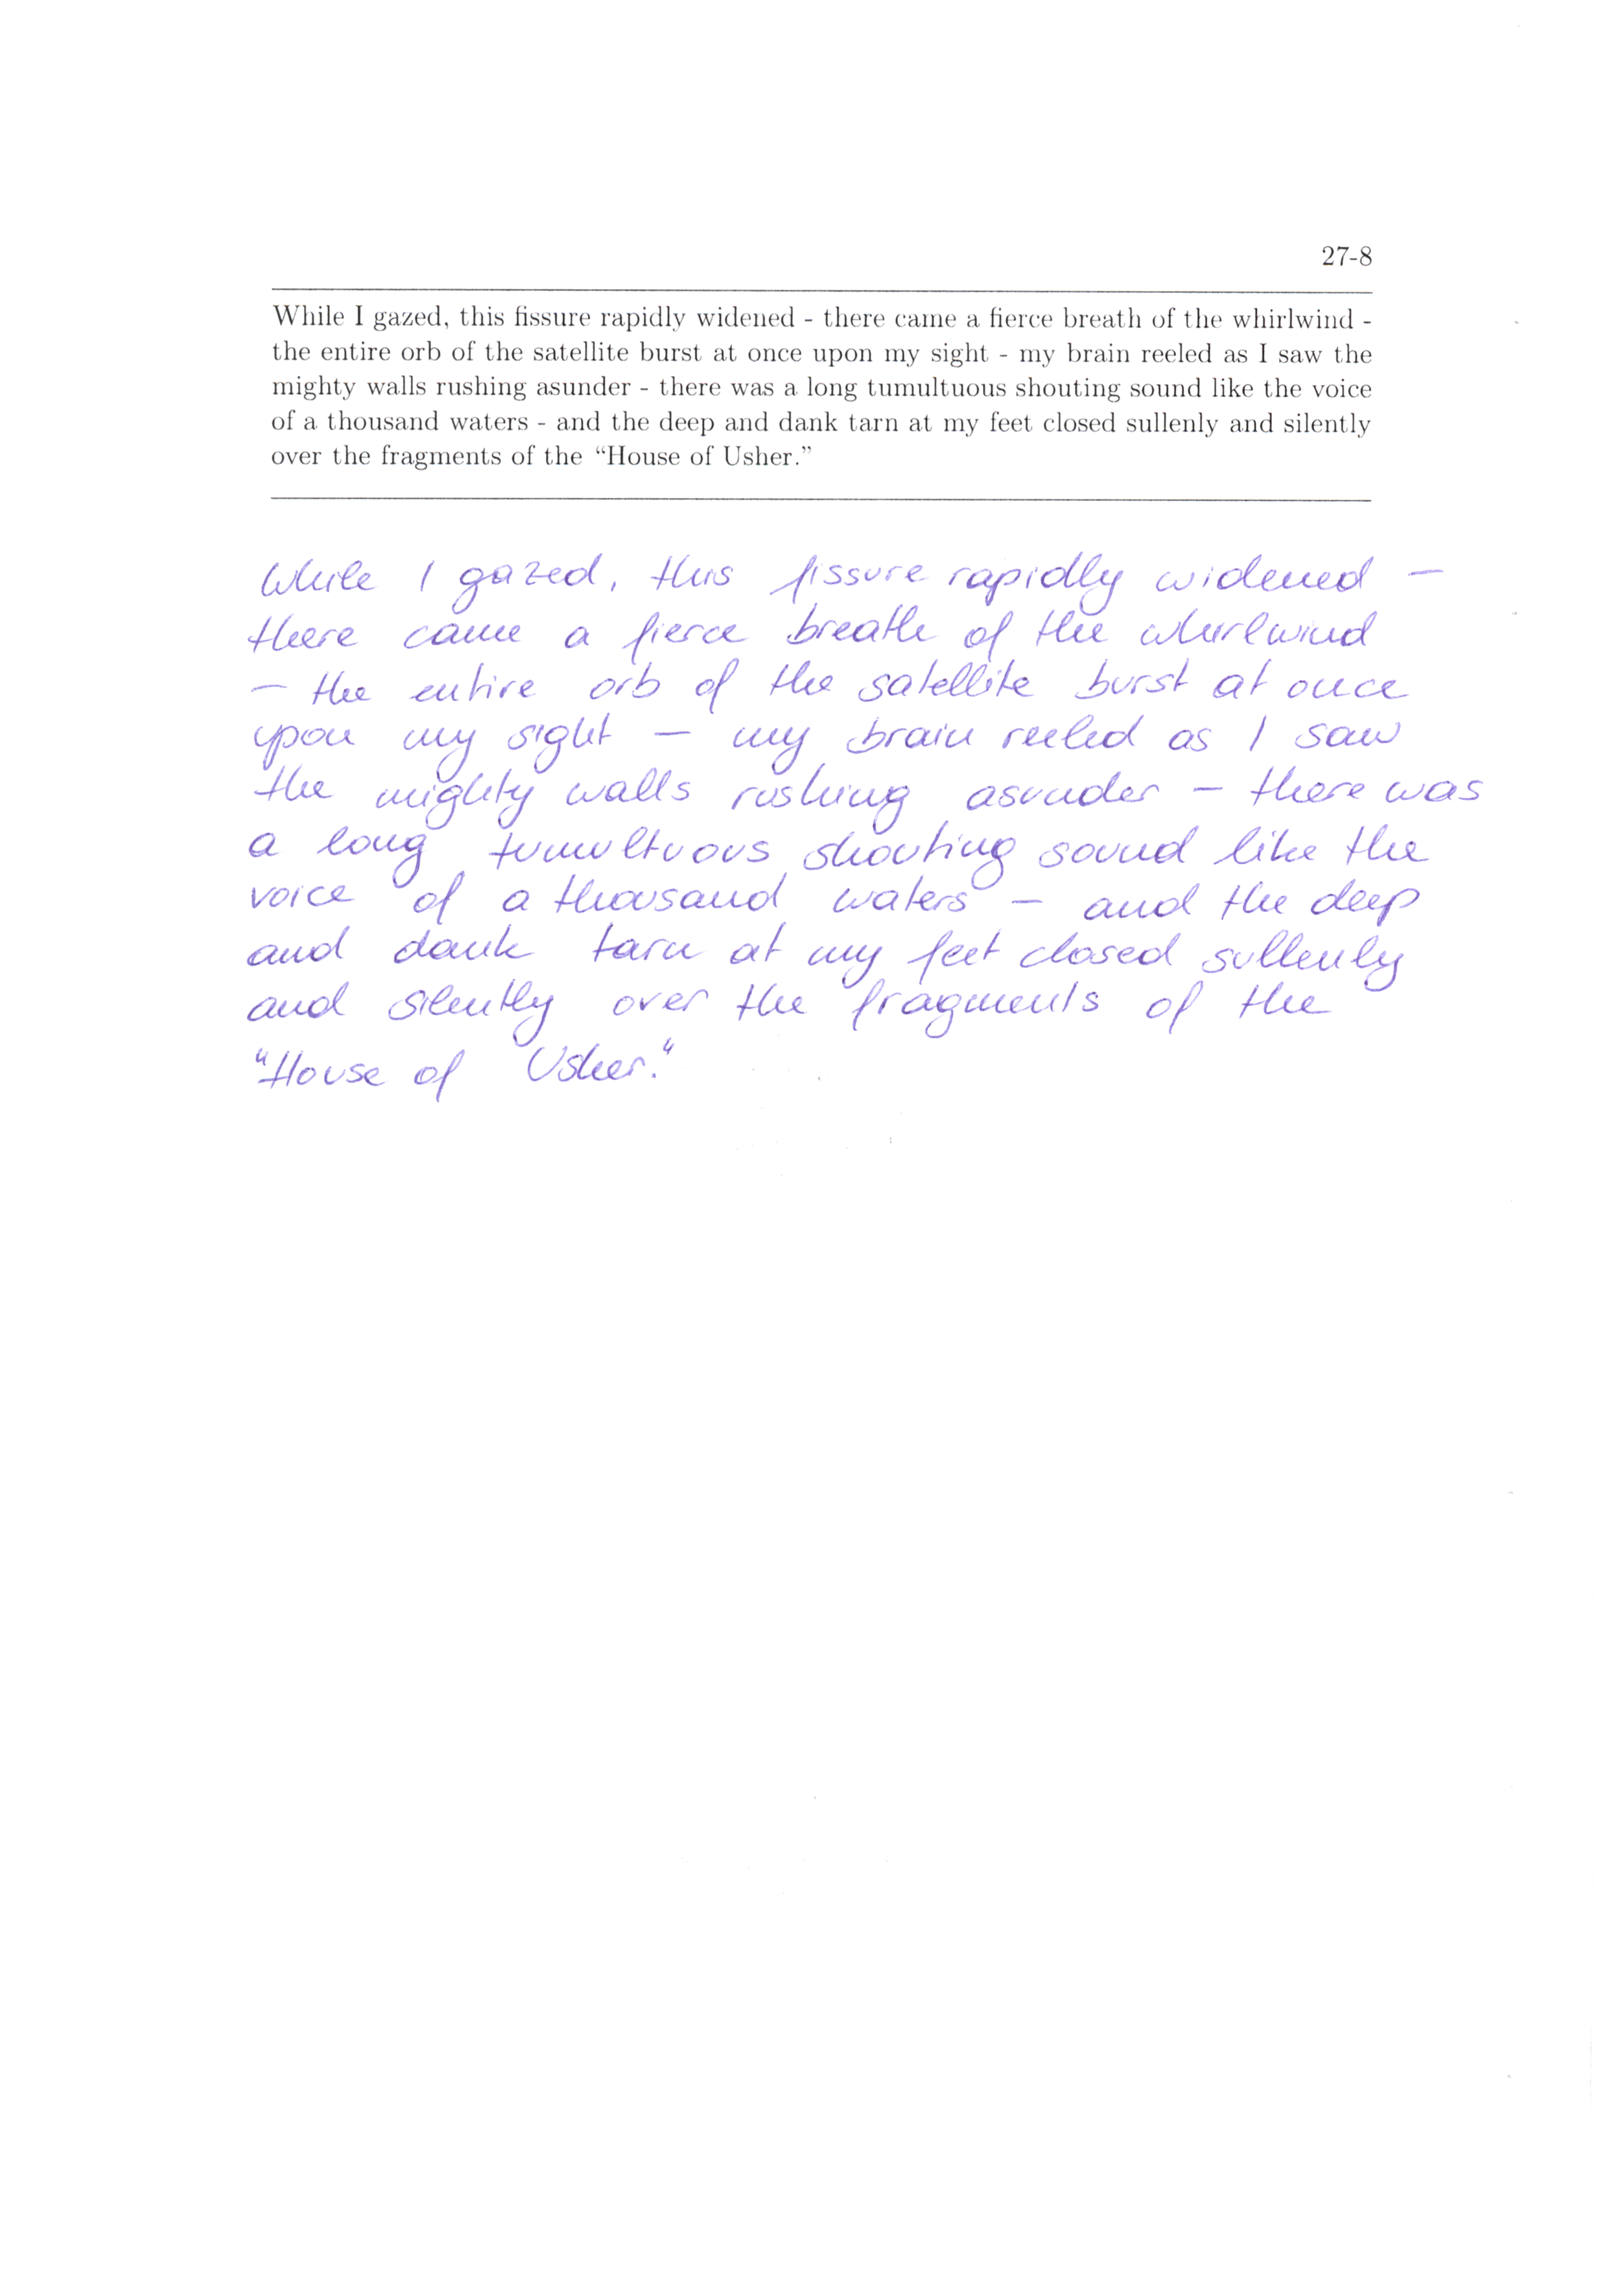 27-8
While I gazed, this fissure rapidly widened - there came a fierce breath of the whirlwind -
the entire orb of the satellite burst at once upon my sight - my brain reeled as I saw the
mighty walls rushing asunder - there was a long tumultuous shouting sound like the voice
of a thousand waters - and the deep and dank tarn at my feet closed sullenly and silently
over the fragments of the “House of Usher.”
While I gazed, this fissure rapidly widened —
there came a fierce breath of the whirlwind
— the entire orb of the satellite burst at once
upon my sight — my brain reeled as I saw
the mighty walls rushing asunder — there was
a long tumultuous shouting sound like the
voice of a thousand waters — and the deep
and dank tarn at my feet closed sullenly
and silently over the fragments of the
“House of Usher.“